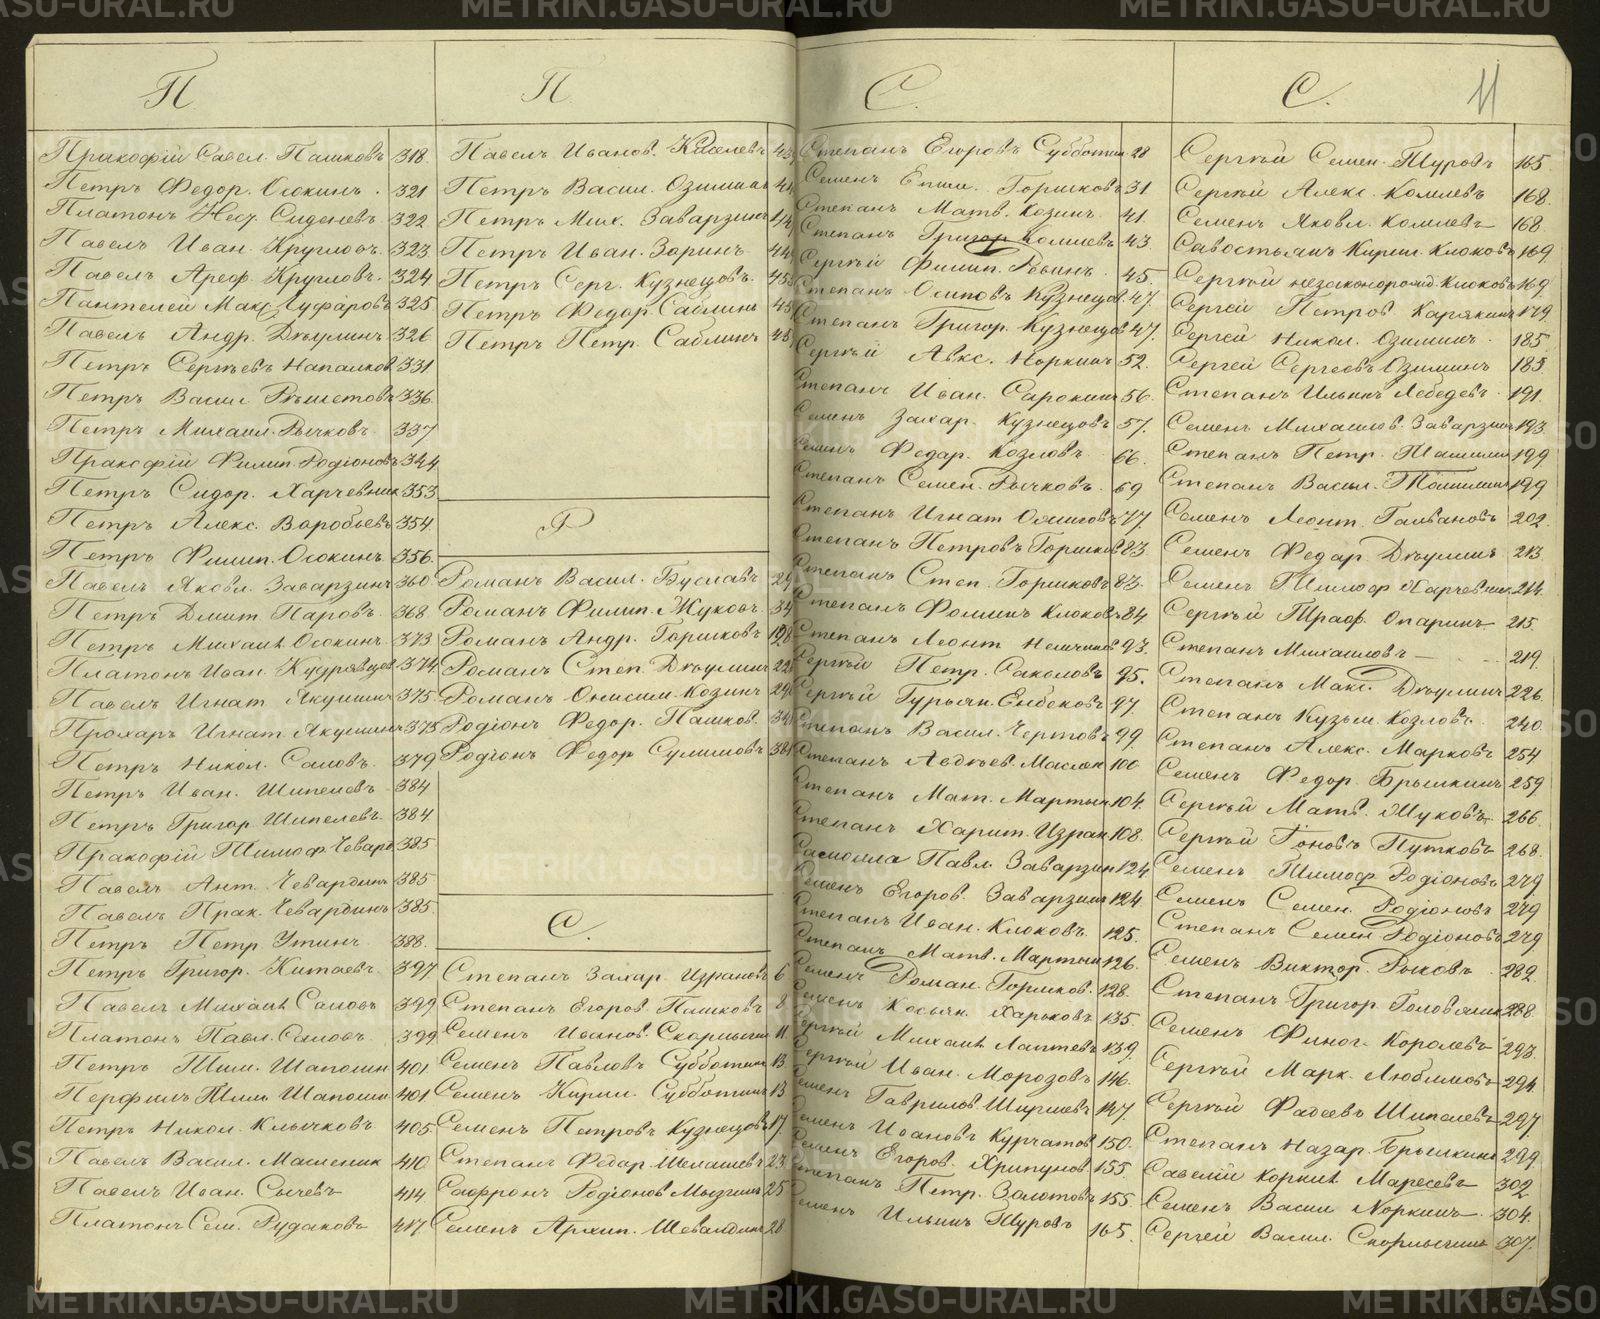 П
Прокофій Савел. Пашковъ 318
Петръ Федор. Осокинъ 321
Платонъ Нес. Сиденевъ 322
Павелъ Иван. Кругловъ 323
Павелъ Ареф. Кругловъ 324
Пантелей Макс. 325
Павелъ Андр. Дѣулинъ 326
Петръ Сергѣевъ Напалков 331
Петръ Васил Рѣшетовъ 336
Петръ Михаил. Рычковъ 337
Пракофій Филип. Родіоновъ 344
Петръ Сидор. Харчевник 353
Петръ Алекс. Воробьевъ 354
Петръ Филип. Осокинъ 356
Павелъ Яковл. Заварзинъ 360
Петръ Дмит. Паровъ 368
Петръ Михаил. Осокинъ 373
Платонъ Иван. Кудрявцов 374
Павелъ Игнат. Якушинъ 375
Прохаръ Игнат. Якушинъ 375
Петръ Никол. Саловъ 379
Петръ Иван. Шипелевъ 384
Петръ Григор. Шипелевъ 384
Пракофій Тимоф. Чевард 385
Павелъ Ант. Чевардинъ 385
Павелъ Прак. Чевардинъ 385
Петръ Петр. Утинъ 388
Петръ Григор. Китаевъ 397
Павелъ Михаил. Саловъ 399
Платонъ Павл. Саловъ 399
Петръ Тим. Шапошн 401
Перфилъ Тим. Шапошн 401
Петръ Никол. Клычковъ 405
Павелъ Васил. Масленик 410
Павелъ Иван. Сычевъ 414
Платонъ Сем. Рудаковъ 417
П
Павелъ Иванов. Киселевъ
Петръ Васил. Озимин
Петръ Мих. Заварзинъ
Петръ Иван. Зоринъ
Петръ Серг. Кузнецовъ
Петръ Федор. Саблинъ
Петръ Петр. Саблинъ
Р
Романъ Васил. Буславъ
Романъ Филип. Жуковъ
Романъ Андр. Горшковъ
Романъ Степ. Дѣулинъ
Романъ Онисим. Козинъ
Родіонъ Федор. Пашков.
Родіонъ Федор. Сулимовъ
С.
Степанъ Захар. Израновъ 6
Степанъ Егоров. Пашковъ 8
Семенъ Иванов. 11
Семенъ Павловъ Субботин 13
Семенъ Кирил. Субботинъ 13
Семенъ Петровъ Кузнецовъ 17
Степанъ Федар. Шелашевъ 23
Сафронъ Родіонов 25
Семенъ Архип. Шевалдинъ 28
С.
11
Степанъ Егоровъ Субботин 28
Семенъ Епим. Горшковъ 31
Степанъ Матв. Козинъ 41
Степанъ Григор. Комиевъ 43
Сергѣй Филип. Ревинъ 45
Степанъ Осиповъ Кузнецов 47
Степанъ Григор. Кузнецов 47
Сергѣй Авкс. Норкинъ 52
Степанъ Иван. Сарокин 56
Семенъ Захар. Кузнецовъ 57
Семенъ Федар. Козловъ 66
Степанъ Семен. Рычковъ 69
Степанъ Игнат. 77
Степанъ Петровъ Горшков 83
Степанъ Степ. Горшковъ 83
Степанъ Фоминъ Клоковъ 84
Степанъ Леонт. 93
Сергѣй Петр. Саколовъ 95
Сергѣй Гурьян. Енбековъ 97
Степанъ Васил. Чертовъ 99
Степанъ Авдѣев. Маслен 100
Степанъ Мат. Мартын 104
Степанъ Харит. Изран 108
Самоила Павл. Заварзин 124
Семенъ Егоров. Заварзин 124
Степанъ Иван. Клоковъ 125
Степанъ Матв. Мартын 126
Семенъ Роман. Горшков 128
Семенъ Косьян. Харьковъ 135
Сергѣй Михаил. Лаптевъ 139
Сергѣй Иван. Морозовъ 146
Семенъ Гаврилов. Ширшевъ 147
Семенъ Ивановъ Курчатов 150
Семенъ Егоров. Хрипунов 155
Степанъ Петр. Золотовъ 155
Семенъ Ильинъ Туровъ 165
С.
Сергѣй Семен. Туровъ 165
Сергѣй Алекс. Комиевъ 168
Семенъ Яковл. Комиевъ 168
Савостьянъ Кирил. Клоковъ 169
Сергѣй незаконорожд. Клоковъ 169
Сергѣй Петров Карякинъ 179
Сергей Никол. Озиминъ 185
Сергей Сергеевъ Озиминъ 185
Степанъ Ильинъ Лебедевъ 191
Семенъ Михаилов. Заварзин 193
Степанъ Петр. Томилин 199
Степанъ Васил. Томилин 199
Семенъ Леонт. Галвановъ 202
Семенъ Федар. Дѣулинъ 213
Семенъ Тимоф. Харчевник 214
Сергѣй Траф. Опаринъ 215
Степанъ Михаиловъ 219
Степанъ Макс. Дѣулинъ 226
Степанъ Кузьм. Козловъ 240
Степанъ Алекс. Марковъ 254
Семенъ Федор. Брылкинъ 259
Сергѣй Матв. Жуковъ 266
Сергѣй Іоновъ Путковъ 268
Семенъ Тимоф. Родіоновъ 279
Семенъ Семен. Родіоновъ 279
Степанъ Семен. Родіоновъ 279
Семенъ Виктор. Рыковъ 282
Степанъ Григор. 288
Семенъ Финог. Королевъ 293
Сергѣй Марк. Любимовъ 294
Сергѣй Фадеевъ Шипелевъ 297
Степанъ Назар. Брылкинъ 299
Савелій Корнил. Маресевъ 302
Семенъ Васил. Норкинъ 304
Сергей Васил. 307
METRIKI.GASO-URAL.RU